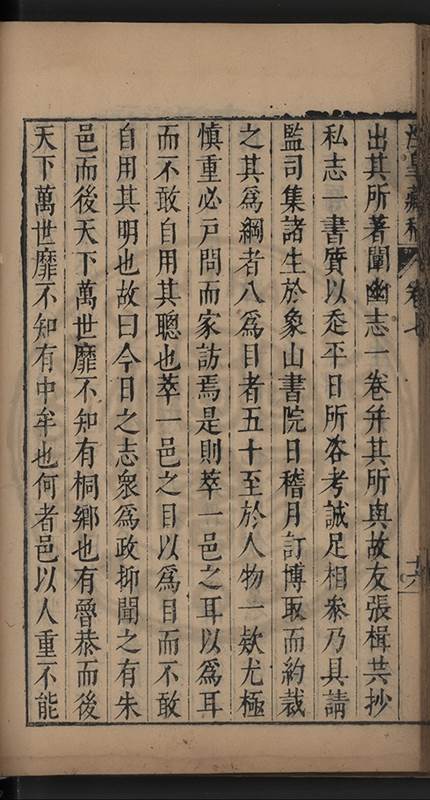 出其所著闡幽志一卷并其所與故友張楫共抄
私志一書質以忝平日所咨考誠足相參乃具請
監司集諸生於象山書院日稽月訂博取而約裁
之其爲綱者八爲目者五十至於人物一欵尤極
慎重必戸問而家訪焉是則萃一邑之耳以爲耳
而不敢自用其聰也萃一邑之目以爲目而不敢
自用其明也故曰今日之志衆爲政抑聞之有朱
邑而後天下萬世靡不知有桐鄉也有魯恭而後
天下萬世靡不知有中牟也何者邑以人重不能